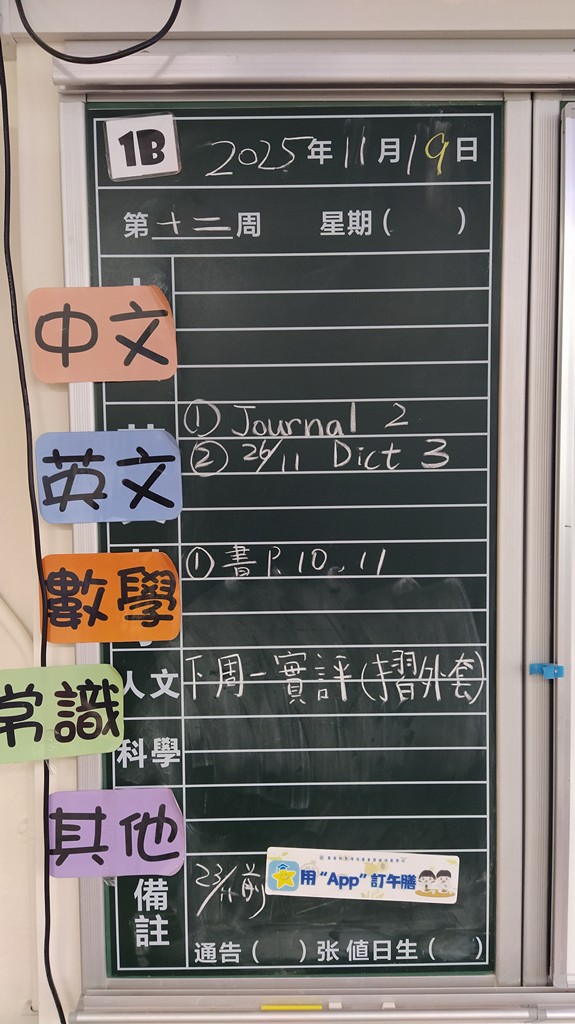 1B 2025年11月19日
第十二周 星期( )
中文
英文
① Journal 2
② 26/11 Dict 3
數學
① 書P.10,11
人文
下周一實評(摺外套)
常識
科學
其他
備註
23/11前
用“App”訂午膳
通告( )张 值日生( )